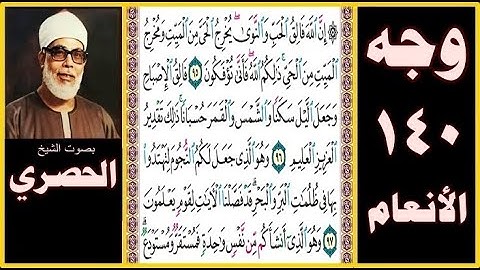 وجه
١٤٠
الأنعام
۞ إِنَّ ٱللَّهَ فَالِقُ ٱلْحَبِّ وَٱلنَّوَىٰ ۖ يُخْرِجُ ٱلْحَىَّ مِنَ ٱلْمَيِّتِ وَمُخْرِجُ
ٱلْمَيِّتِ مِنَ ٱلْحَىِّ ۚ ذَٰلِكُمُ ٱللَّهُ ۖ فَأَنَّىٰ تُؤْفَكُونَ ٩٥ فَالِقُ ٱلْإِصْبَاحِ
وَجَعَلَ ٱلَّيْلَ سَكَنًا وَٱلشَّمْسَ وَٱلْقَمَرَ حُسْبَانًا ۚ ذَٰلِكَ تَقْدِيرُ
ٱلْعَزِيزِ ٱلْعَلِيمِ ٩٦ وَهُوَ ٱلَّذِى جَعَلَ لَكُمُ ٱلنُّجُومَ لِتَهْتَدُوا۟
بِهَا فِى ظُلُمَٰتِ ٱلْبَرِّ وَٱلْبَحْرِ ۗ قَدْ فَصَّلْنَا ٱلْـَٔايَٰتِ لِقَوْمٍ يَعْلَمُونَ
٩٧ وَهُوَ ٱلَّذِىٓ أَنشَأَكُم مِّن نَّفْسٍ وَٰحِدَةٍ فَمُسْتَقَرٌّ وَمُسْتَوْدَعٌ ۗ
بصوت الشيخ
الحصري